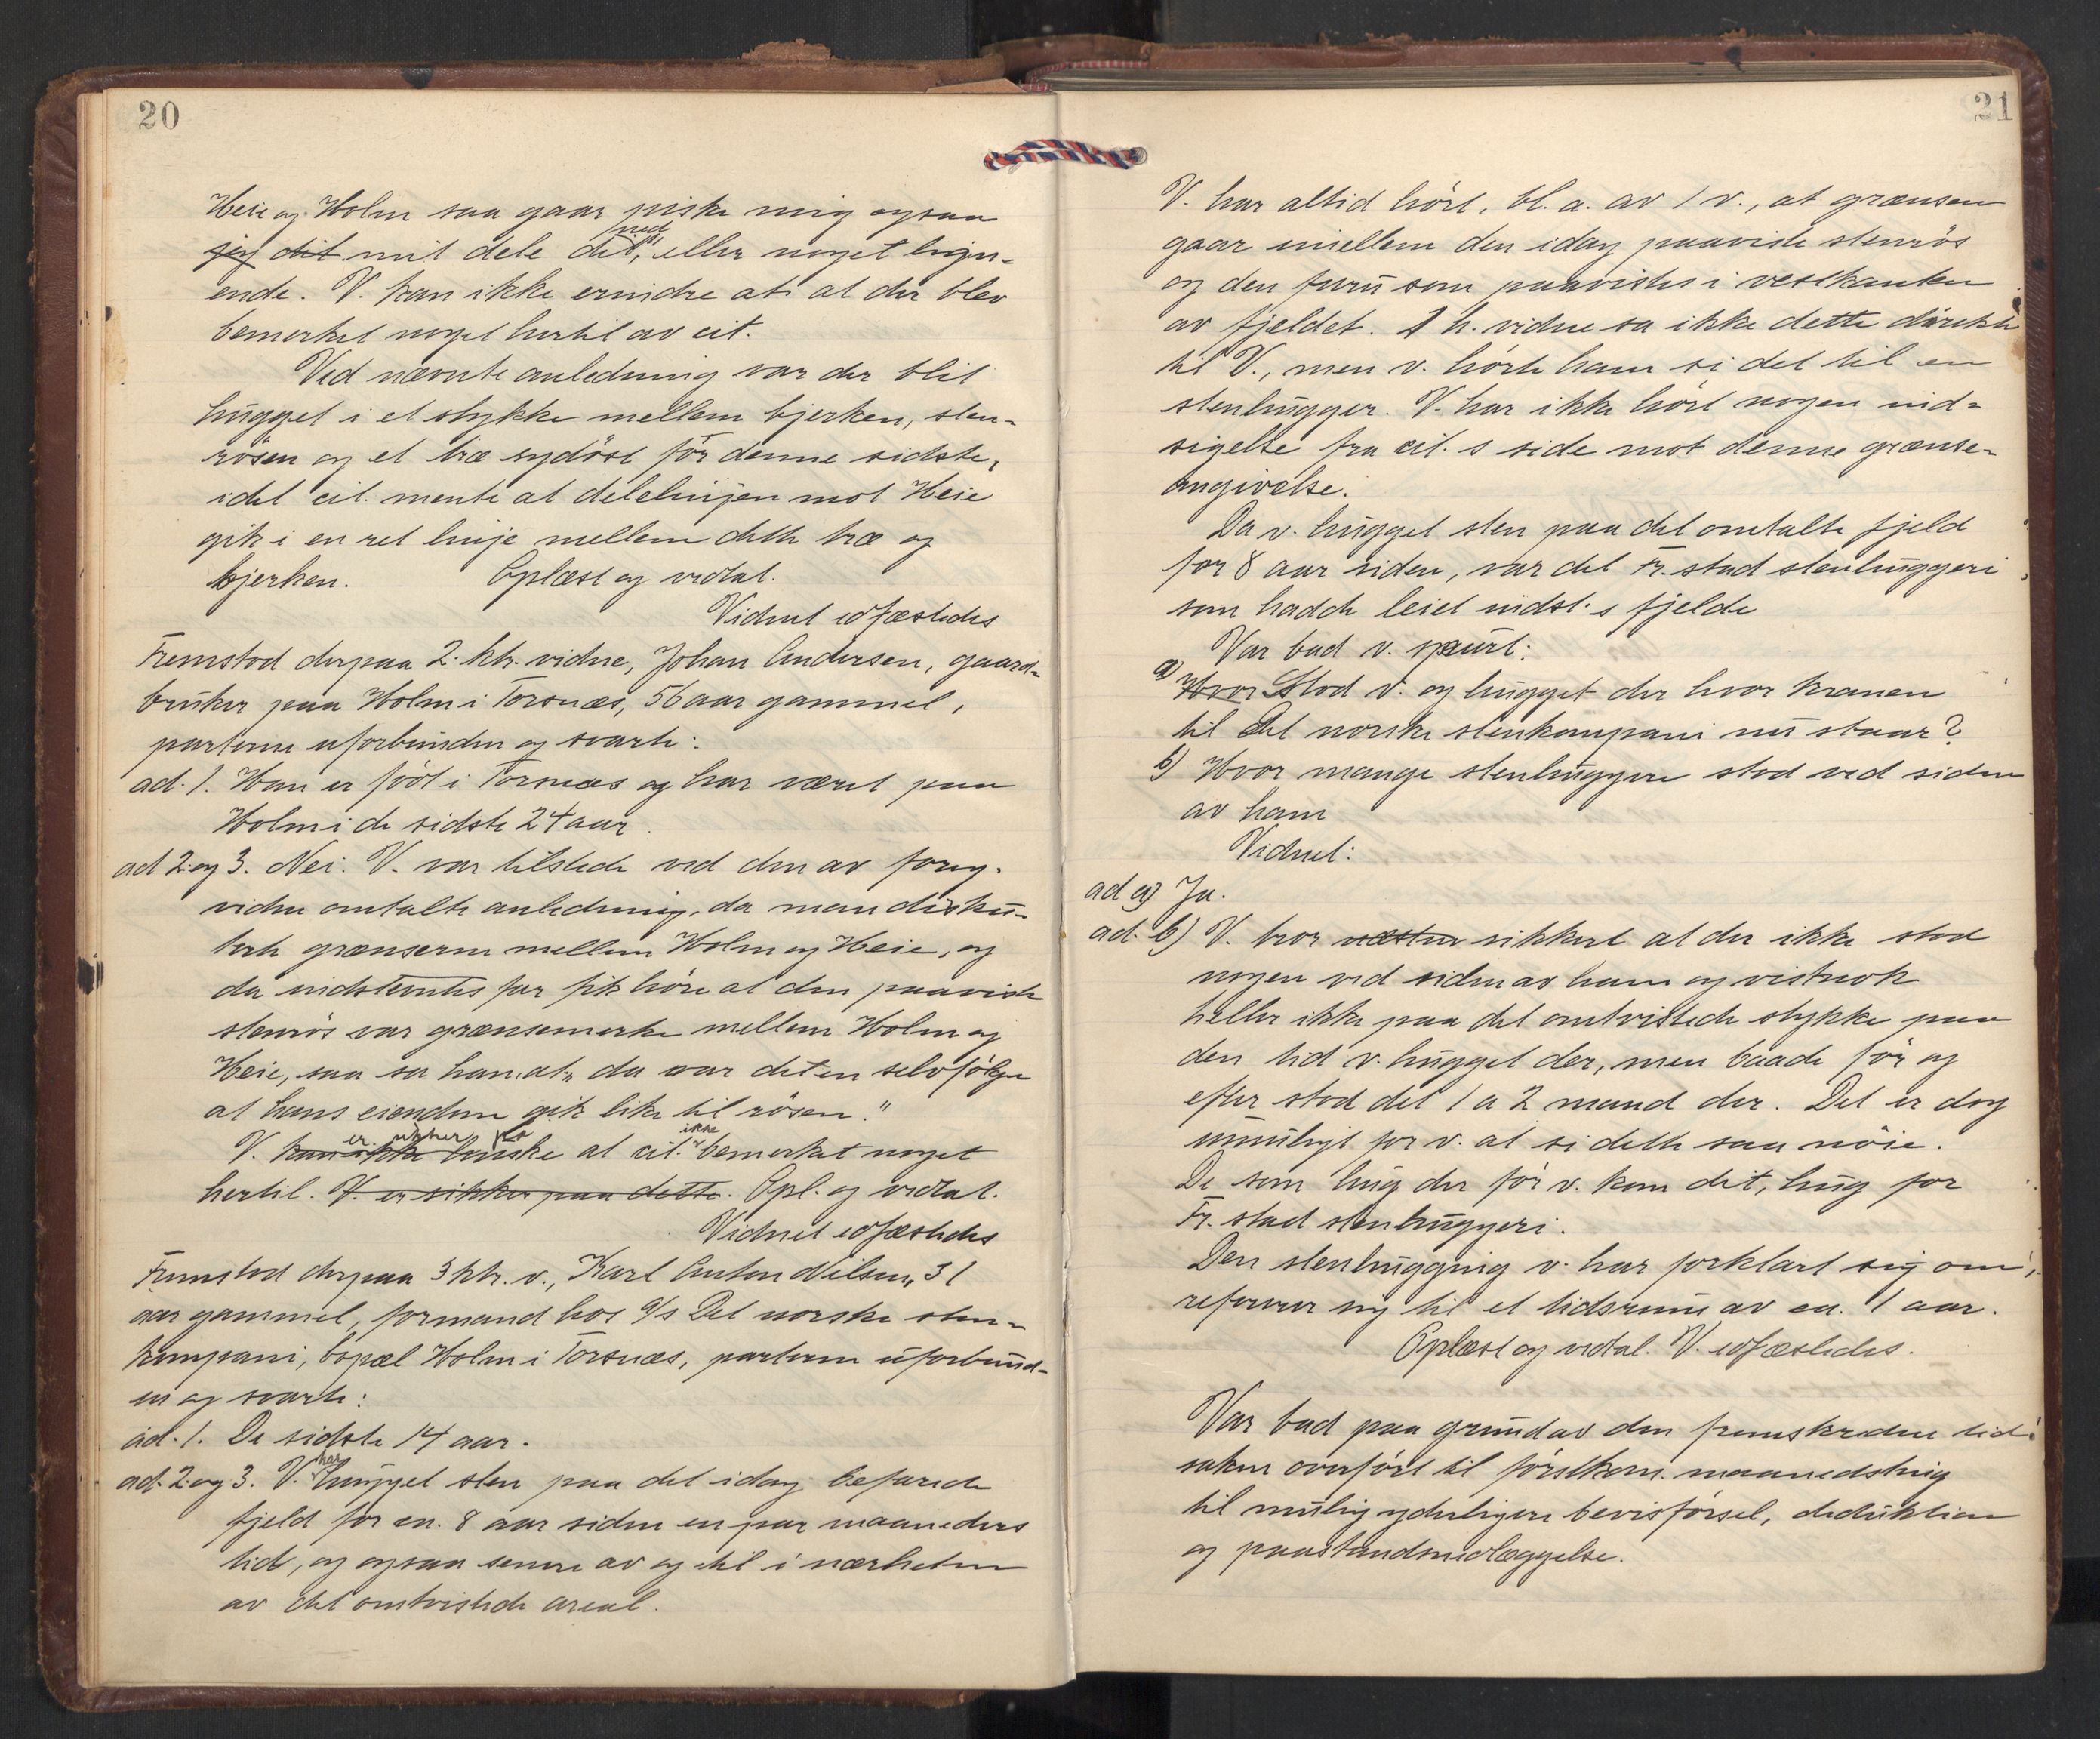 20
Heie og Holm saa gaar piske mig ogsaa
jeg dit mit dele dit ned", eller noget lign-
ende. V. kan ikke erindre at at der blev
bemerket noget hertil av cit.
Ved nævnte anledning var der blit
hugget i et stykke mellem bjerken, sten-
røsen og et træ sydøst før denne sidste,
idet cit. mente at delelinjen mot Heie
gik i en ret linje mellem dette træ og
bjerken. Oplæst og vedtat.
Vidnet edfæstedes
Fremstod derpaa 2. ktr. vidne, Johan Andersen, gaard-
bruker paa Holm i Torsnæs, 56 aar gammel,
parterne uforbunden og svarte:
ad. 1. Han er født i Torsnæs og har været paa
Holm i de sidste 24 aar.
ad 2. og 3. Nei. V. var tilstede ved den av forrig.
vidne omtalte anledning, da man disku-
terte grænserne mellem Holm og Heie, og
da indstevntes far fik høre at den paaviste
stenrøs var grænsemerke mellem Holm og
Heie, saa sa han at „da var det en selvfølge
at hans eiendom gik like til røsen."
V. kan ikke huske er sikker paa at cit. ikke bemerket noget
hertil. V. er sikker paa dette. Opl. og vedtat.
Vidnet edfæstedes
Fremstod derpaa 3 ktr. v., Karl Anton Nilsen, 31
aar gammel, formand hos A/s Det norske sten-
kompani, bopæl Holm i Torsnæs, parterne uforbund-
en og svarte:
ad. 1. De sidste 14 aar.
ad. 2. og 3. V. har hugget sten paa det idag befarede
fjeld for ca. 8 aar siden en par maaneders
tid, og ogsaa senere av og til i nærheten
av det omtvistede areal.
21
V. har altid hørt, bl. a. av 1 v., at grænsen
gaar imellem den idag paaviste stenrös
og den furu som paavistes i vestkanten
av fjeldet. 1 h. vidne sa ikke dette direkte
til V., men v. hørte ham si det til en
stenhugger. V. har ikke hørt nogen ind-
sigelse fra cit. s side mot denne grænse-
angivelse.
Da v. hugget sten paa det omtalte fjeld
for 8 aar siden, var det Fr. stad stenhuggeri
som hadde leiet indst. s fjelde
Var bad v. spurt:
a) Hvor Stod v. og hugget der hvor kranen
til Det norske stenkompani nu staar?
b) Hvor mange stenhuggere stod ved siden
av ham
Vidnet:
ad a) Ja.
ad. b) V. tror næsten sikkert at der ikke stod
nogen ved siden av ham og vistnok
heller ikke paa det omtvistede stykke paa
den tid v. hugget der, men baade før og
efter stod det 1 a 2 mand der. Det er dog
umuligt for v. at si dette saa nöie.
De som hug der før v. kom dit, hug for
Fr. stad stenhuggeri.
Den stenhugging v. har forklart sig om,
refererer sig til et tidsrum av ca. 1 aar.
Oplæst og vedtat. V. edfæstedes.
Var bad paa grund av den fremskredne tid
saken overført til førstkom. maanedsting
til mulig yderligere bevisførsel, deduktion
og paastandsnedlæggelse.